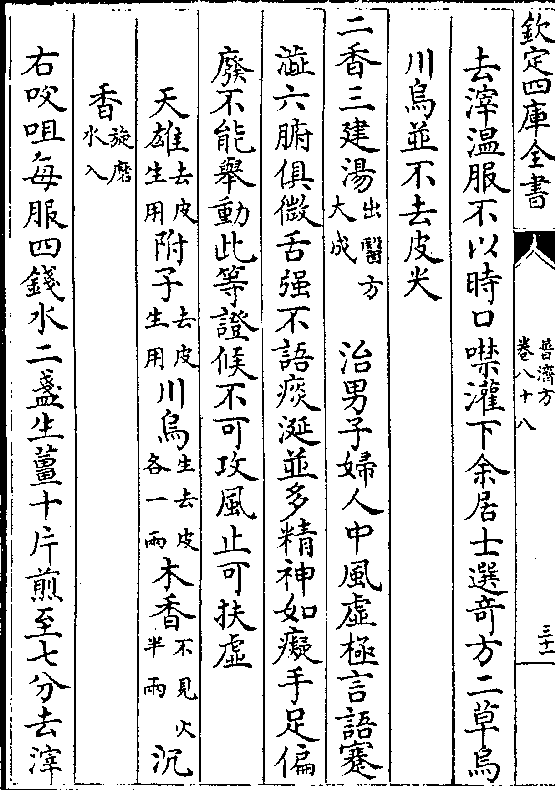 欽定四庫全書
普濟方
卷八十八
三十一
去滓温服不以時口噤灌下余居士選竒方二草烏
川烏並不去皮尖
二香三建湯出醫方大成　治男子婦人中風虛極言語蹇
澁六腑俱微舌强不語痰涎並多精神如癡手足偏
廢不能舉動此等證候不可攻風止可扶虛
天雄去皮生用附子去皮生用川烏生去皮各一兩木香不見火半兩沉
香旋磨水入
右㕮咀每服四錢水二盞生薑十片煎至七分去滓